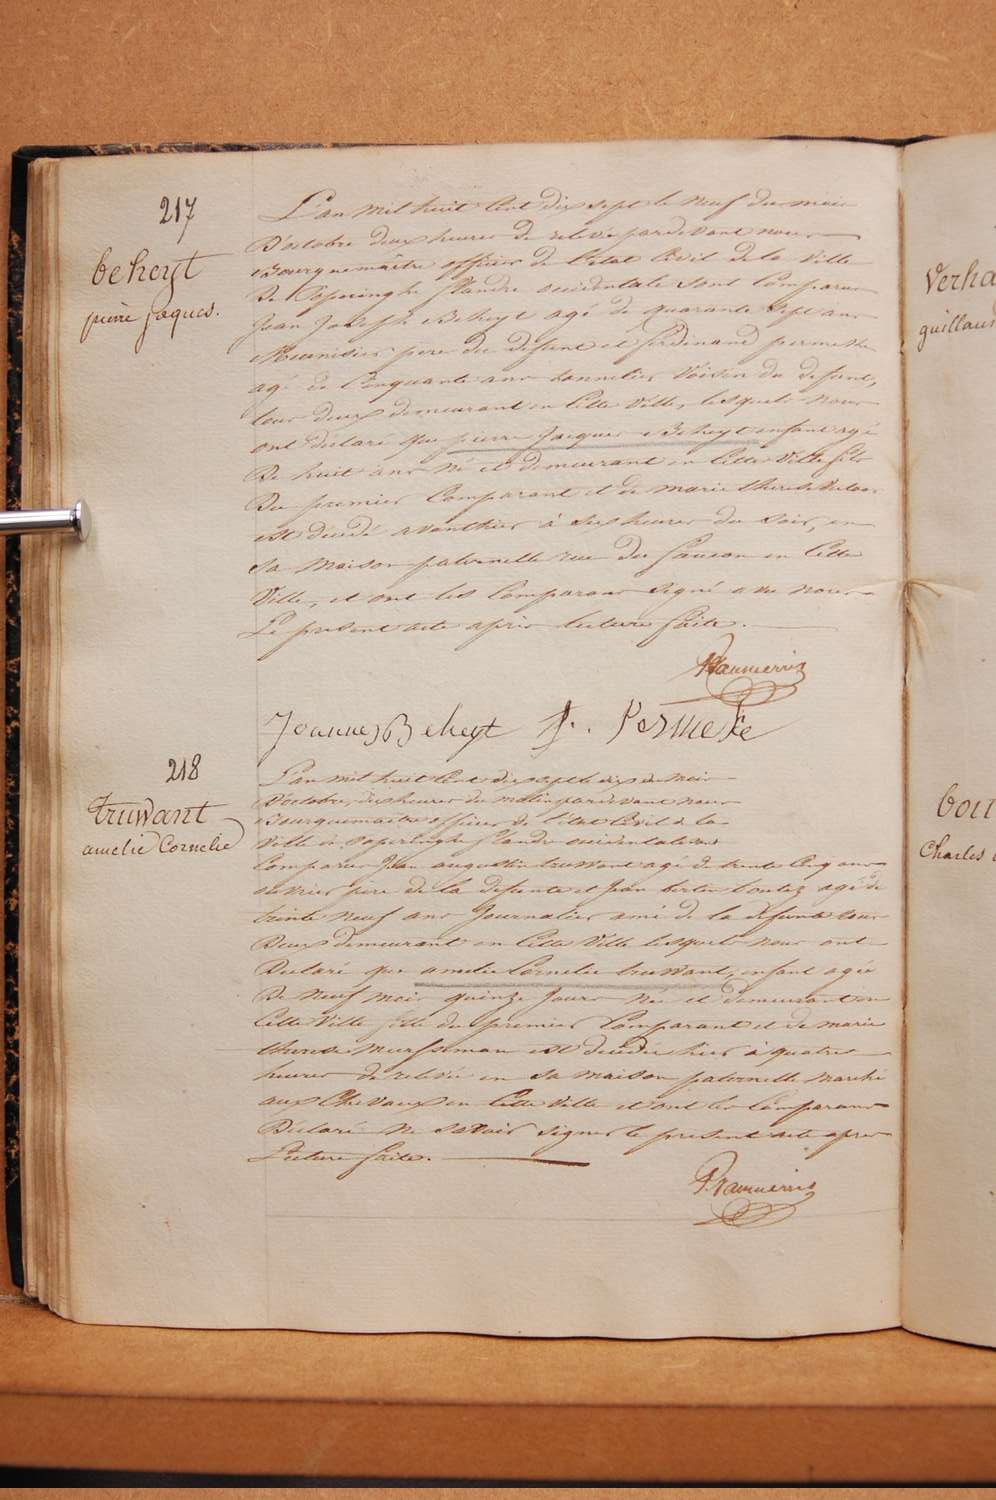 217
beheyt
pierre jacques.
L'an mil huit Cent dix sept le neuf du mois
D'octobre deux heures de relevée pardevant nous
Bourguemaitre officier de l'etat Civil de la Ville
De Poperinghe flandre occidentale sont Comparus
Jean Joseph Beheyt agé de quarante sept ans
Meunisier pere du defunt et ferdinand permeke
agé de Cinquante ans tonnelier Voisin du defunt,
tous deux demeurant en Cette Ville, lesquels nous
ont déclaré que pierre Jacques Beheyt enfant agé
De huit ans né et demeurant en Cette Ville fils
Du premier Comparant et de marie therese
est décédé avanthier à six heures du soir, en
sa maison paternelle rue du en Cette
Ville, et ont les Comparans signé avec nous
Le present acte après lecture faite.
Joannes Beheyt F. Permeke
218
truwant
amelie Cornelie
L'an mil huit Cent dix sept le dix du mois
D'octobre, dix heures du matin pardevant nous
Bourguemaitre officier de l'état Civil de la
Ville de Poperinghe flandre occidentale sont
Comparus Jean augustin truwant agé de trente Cinq ans
ouvrier pere de la defunte et Jean bertin boutez agé de
trente neuf ans Journalier ami de la defunte tous
Deux demeurant en Cette Ville lesquels nous ont
Déclaré que amelie Cornelie truwant, enfant agée
De neuf mois quinze Jours née et demeurant en
Cette Ville fille du premier Comparant et de marie
therese est décédée hier à quatre
heures de relevée en sa maison paternelle marché
aux Chevaux en Cette Ville et ont les Comparans
Déclaré ne savoir signer le present acte apres
Lecture faite.
Verha
guillau
bou
Charles